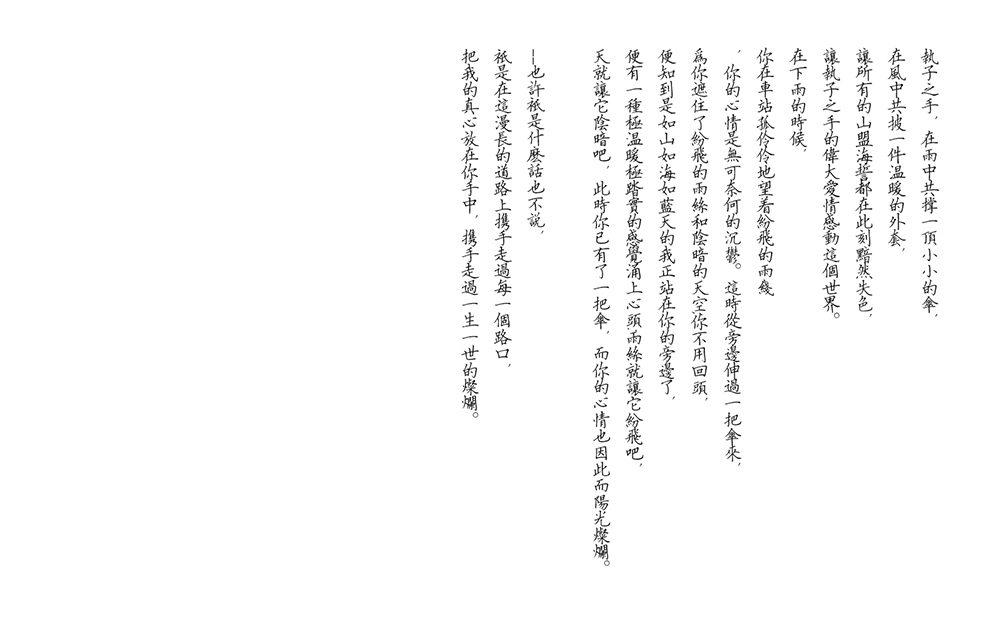 執子之手，在雨中共撐一頂小小的傘，
在風中共披一件温暖的外套，
讓所有的山盟海誓都在此刻黯然失色，
讓執子之手的偉大愛情感動這個世界。
在下雨的時候，
你在車站孤伶伶地望着紛飛的雨幾
，你的心情是無可奈何的沉鬱。這時從旁邊伸過一把傘來，
爲你遮住了紛飛的雨絲和陰暗的天空你不用回頭，
便知到是如山如海如藍天的我正站在你的旁邊了，
便有一種極温暖極踏實的感覺涌上心頭雨絲就讓它紛飛吧，
天就讓它陰暗吧，此時你已有了一把傘，而你的心情也因此而陽光燦爛。
—也許衹是什麽話也不説，
衹是在這漫長的道路上携手走過每一個路口，
把我的真心放在你手中，携手走過一生一世的燦爛。